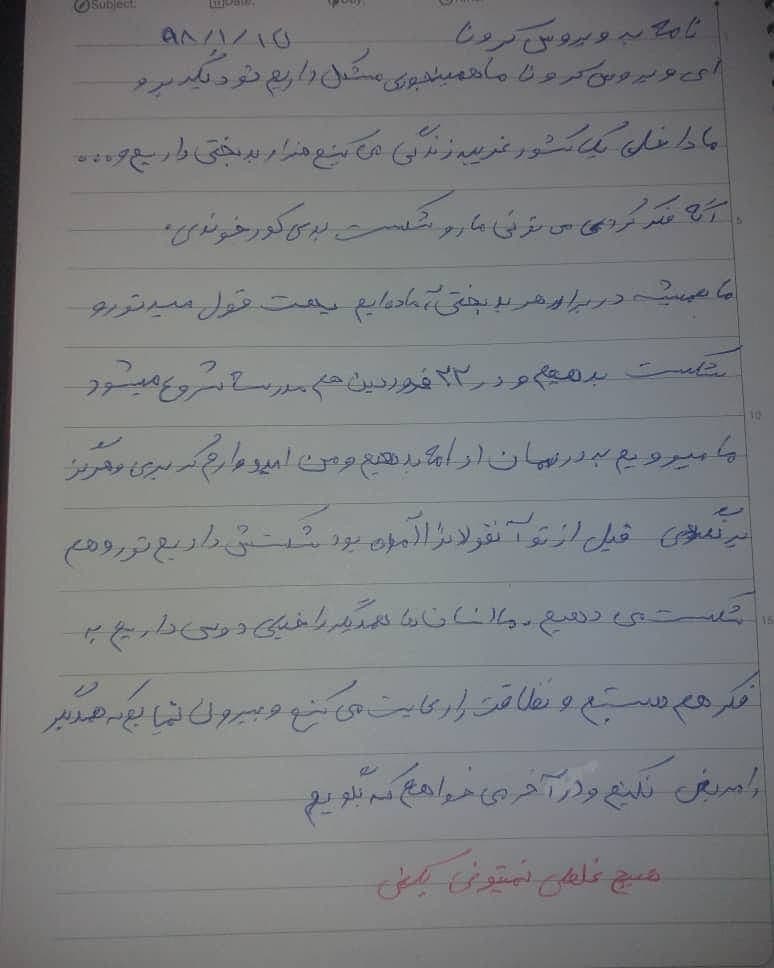 Subject: Date: Day:
نامه به ویروس کرونا ۹۸/۱/۱۵
ای ویروس کرونا ما همینجوری مشکل داریم تو دیگه برو
ما داخل یک کشور غریب زندگی می کنیم هزار بدبختی داریم و...
اگه فکر کردی می تونی مارو شکست بدی کور خوندی.
5
ما همیشه در برابر هر بدبختی آماده‌ایم بهت قول میدم تورو
شکست بدهیم و در ۲۳ فروردین هم مدرسه شروع میشود
10
ما میرویم به درسمان ادامه بدهیم و من امیدوارم که بری و هرگز
برنگردی قبل از تو آنفولانزا آمده بود شکستش دادیم تورو هم
شکست می دهیم. ما انسان ها همدیگر را خیلی دوس داریم به
15
فکر هم هستیم و نظافت را رعایت می کنیم و بیرون نمیایم که همدیگر
را مریض نکنیم و در آخر می خواهم که بگویم
هیچ غلطی نمیتونی بکنی